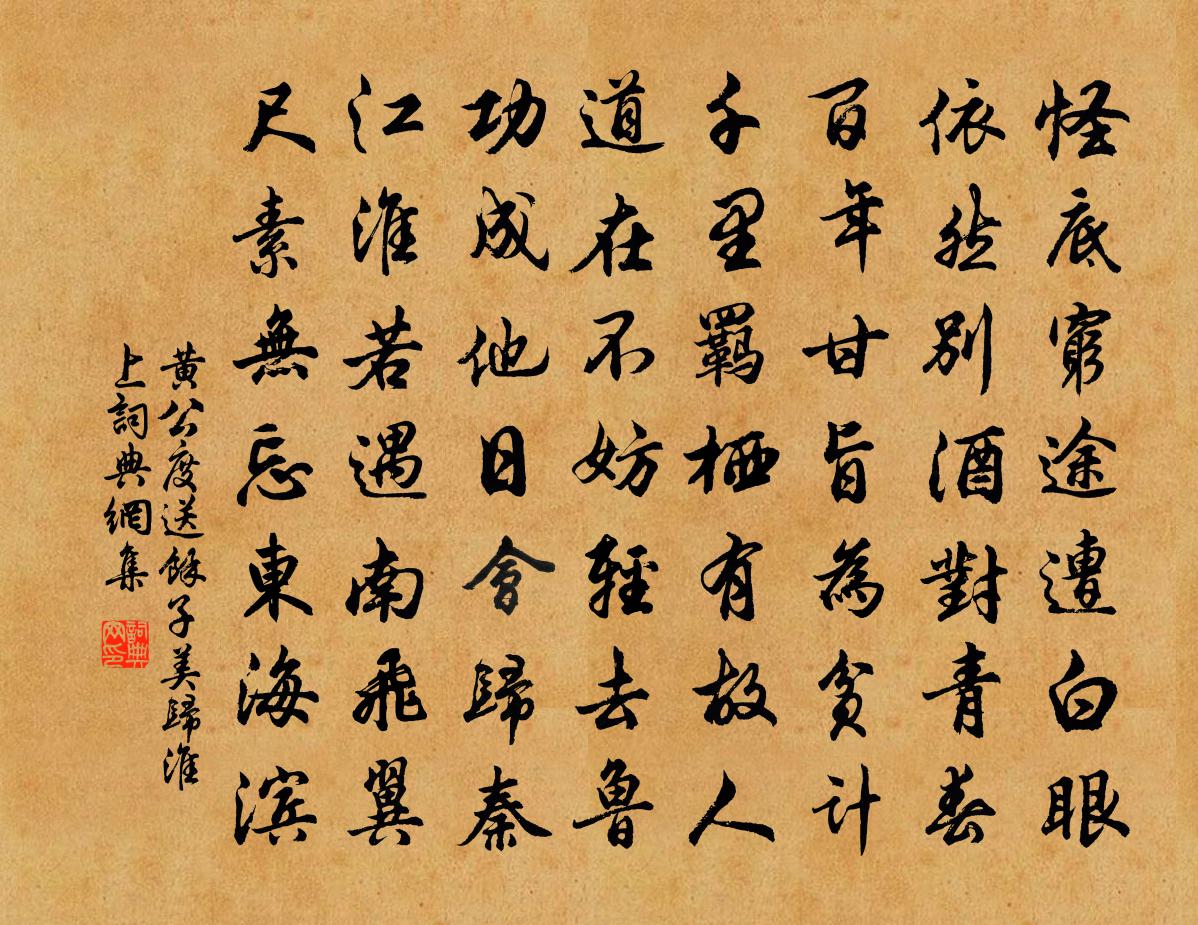 怪底窮途遭白眼
依然別酒對青春
百年甘旨為貧計
千里羁栖有故人
道在不妨輕去魯
功成他日會歸秦
江淮若遇南飛翼
尺素無忘東海滨
黃公度送餘子美歸淮
上詞典網集
詞典
网印